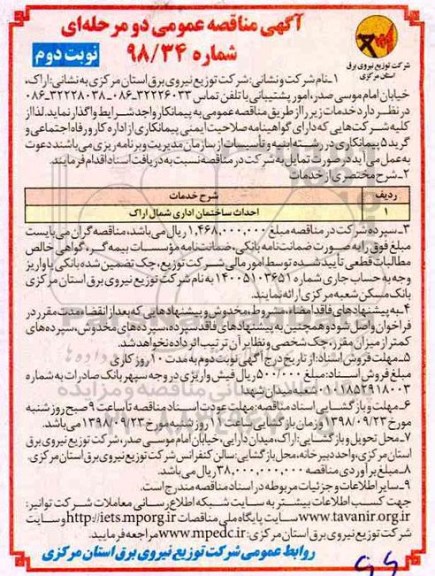 آگهی مناقصه عمومی دو مرحله‌ای
شماره ۹۸/۳۴
نوبت دوم
شرکت توزیع نیروی برق
استان مرکزی
۱-نام شرکت و نشانی: شرکت توزیع نیروی برق استان مرکزی به نشانی: اراک،
خیابان امام موسی صدر، امور پشتیبانی با تلفن تماس ۳۲۲۲۶۰۳۳-۰۸۶ ۳۲۲۲۸۰۳۸-۰۸۶
در نظر دارد خدمات زیر را از طریق مناقصه عمومی به پیمانکار واجد شرایط واگذار نماید. لذا از
کلیه شرکت‌هایی که دارای گواهینامه صلاحیت ایمنی پیمانکاری از اداره کار و رفاه اجتماعی و
گرید ۵ پیمانکاری در رشته ابنیه و تأسیسات از سازمان مدیریت و برنامه ریزی می‌باشند دعوت
به عمل می‌آید در صورت تمایل به شرکت در مناقصه نسبت به دریافت اسناد اقدام فرمایند.
۲-شرح مختصری از خدمات
ردیف شرح خدمات
۱ احداث ساختمان اداری شمال اراک
۳-سپرده شرکت در مناقصه مبلغ ۱,۴۶۸,۰۰۰,۰۰۰ ریال می‌باشد، مناقصه گران می‌بایست
مبلغ فوق را به صورت ضمانت نامه بانکی، ضمانت نامه مؤسسات بیمه گر، گواهی خالص
مطالبات قطعی تأیید شده توسط امور مالی شرکت توزیع، چک تضمین شده بانکی یا واریز
وجه به حساب جاری شماره ۱۴۰۰۵۱۰۳۶۵۱ به نام شرکت توزیع نیروی برق استان مرکزی
بانک مسکن شعبه مرکزی ارائه نمایند.
۴-به پیشنهادهای فاقد امضاء، مشروط، مخدوش و پیشنهادهایی که بعد از انقضاء مدت مقرر در
فراخوان واصل شود و همچنین به پیشنهادهای فاقد سپرده، سپرده‌های مخدوش، سپرده‌های
کمتر از میزان مقرر، چک شخصی و نظایر آن ترتیب اثر داده نخواهد شد.
۵-مهلت فروش اسناد: از تاریخ درج آگهی نوبت دوم به مدت ۱۰ روز کاری
مبلغ فروش اسناد: مبلغ ۵۰۰/۰۰۰ ریال فیش واریزی در وجه سپهر بانک صادرات به شماره
۰۱۰۱۸۵۲۹۱۸۰۰۳ شعبه میدان شهدا
۶-مهلت و بازگشایی اسناد مناقصه: مهلت عودت اسناد مناقصه تا ساعت ۹ صبح روز شنبه
مورخ ۱۳۹۸/۰۹/۲۳ و زمان بازگشایی ساعت ۱۰ روز شنبه مورخ ۱۳۹۸/۰۹/۲۳ می‌باشد.
۷-محل تحویل و بازگشایی: اراک، میدان دارایی، خیابان امام موسی صدر، شرکت توزیع نیروی برق
استان مرکزی، واحد دبیرخانه، محل بازگشایی: سالن کنفرانس شرکت توزیع نیروی برق استان مرکزی.
۸-مبلغ برآوردی مناقصه ۳۸,۰۰۰,۰۰۰,۰۰۰ ریال می‌باشد.
۹-سایر اطلاعات و جزئیات مربوطه در اسناد مناقصه مندرج است.
جهت کسب اطلاعات بیشتر به سایت شبکه اطلاع رسانی معاملات شرکت توانیر:
www.tavanir.org.ir سایت پایگاه ملی مناقصات http://iets.mporg.ir و سایت
شرکت توزیع نیروی برق استان مرکزی: www.mpedc.ir مراجعه فرمایید.
روابط عمومی شرکت توزیع نیروی برق استان مرکزی